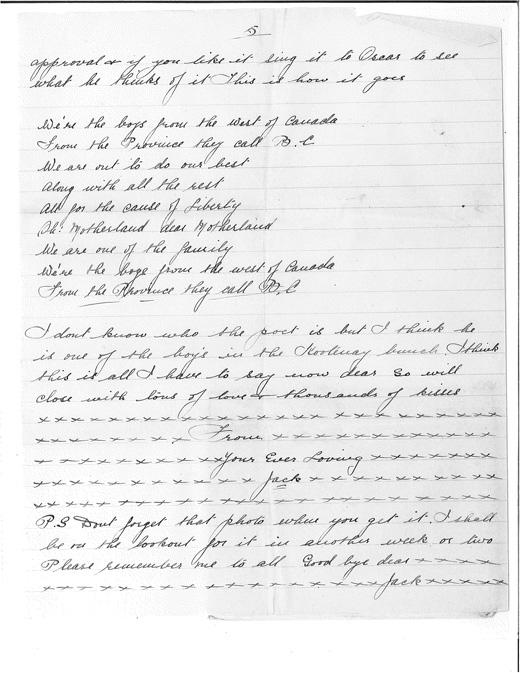 5
approval & if you like it sing it to Oscar to see
what he thinks of it This is how it goes
We're the boys from the west of Canada
From the Province they call B.C
We are out to do our best
Along with all the rest
All for the cause of Liberty
Oh! Motherland dear Motherland
We are one of the family
We're the boys from the west of Canada
From the Province they call B.C
I dont know who the poet is but I think he
is one of the boys in the Kootenay bunch. I think
this is all I have to say now dear so will
close with tons of love & thousands of kisses
x x x x x x x x x x x x x x x x x x x x x x
x x x x x x x x From x x x x x x x x x x x
x x x x x x x x x x Your Ever Loving x x x x x x
x x x x x x x x x x x Jack x x x x x x x x x
x x x x x x x x x x x x x x x x x x x x x
P.S Dont forget that photo when you get it. I shall
be on the lookout for it in another week or two
Please remember me to all Good bye dear x x x x
x x x x x x x x x x x x x x x x Jack x x x x x